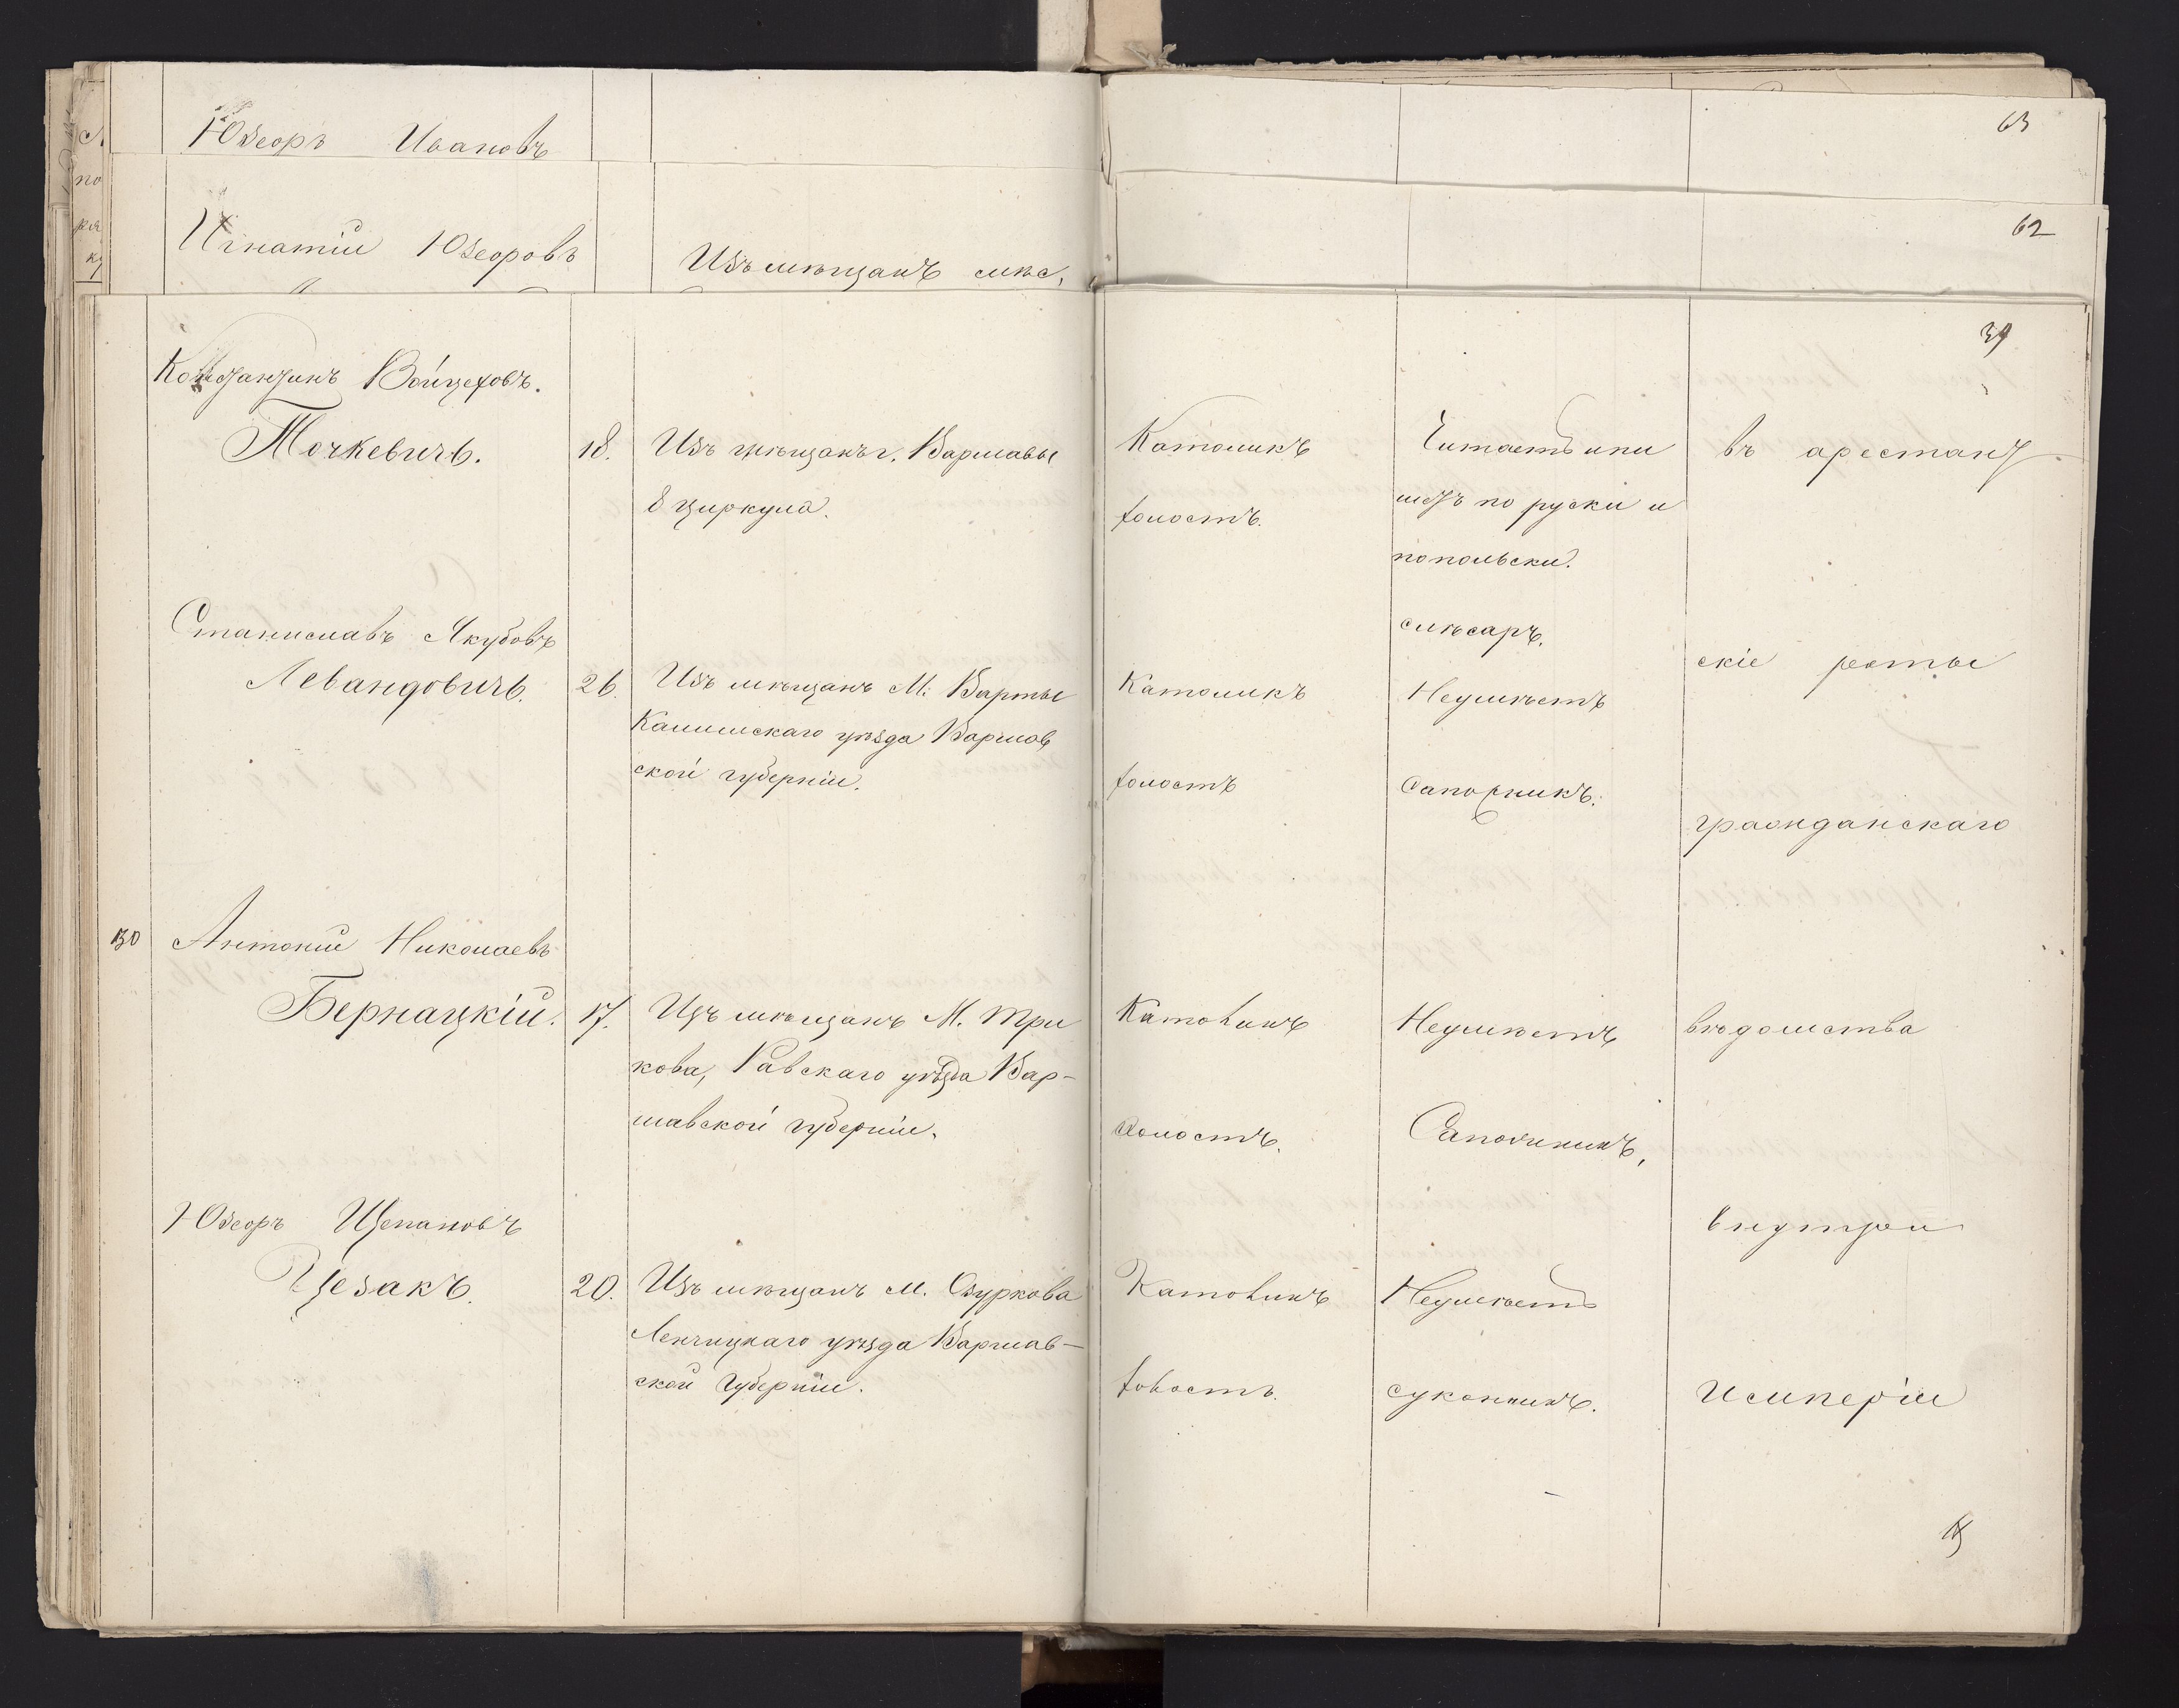 63
Юзеоръ Ивановъ
62
Игнатій Юзеоровъ
Изъ мѣщанъ мѣс,
39
Константинъ Войцеховъ.
Точкевичъ.
18.
Изъ мѣщанъ г. Варшавы
8 циркула.
Католикъ
холостъ.
Читаетъ и пи
шетъ по руски и
попольски.
слѣсаръ.
въ арестант
Станиславъ Якубовъ
Левандовичъ.
26.
Изъ мѣщанъ М. Варты
Калишскаго уѣзда Варшав
ской губерніи.
Католикъ
холостъ
Неумѣетъ
Сапожникъ.
скіе роты
гражданскаго
130
Антоній Николаевъ
Бернацкій.
17.
Изъ мѣщанъ М.
кова, Равскаго уѣзда Вар-
шавской губерніи.
Католикъ
Холостъ.
Неумѣетъ
Сапожникъ,
вѣдомства
Юзеоръ Щепановъ
Цезакъ.
20.
Изъ мѣщанъ М. Озуркова
Ленчицкаго уѣзда Варшав-
ской Губерніи.
Католикъ
холостъ.
Неумѣетъ
суконникъ.
внутри
Имперіи